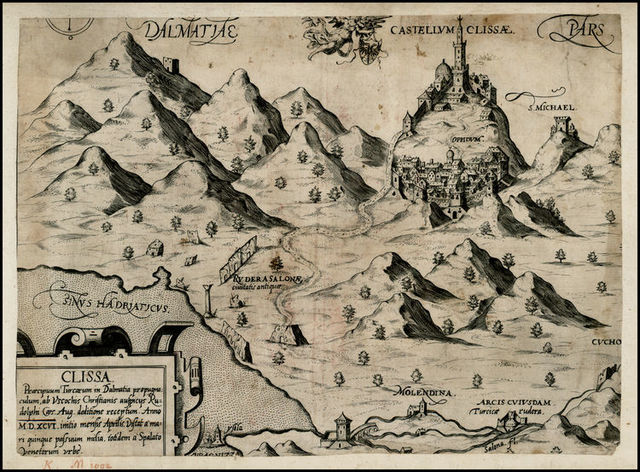 DALMATIÆ
CASTELLVM CLISSÆ.
PARS
S. MICHAEL.
OPIDVM
RVDERA SALONÆ
civitatis antiquæ
SINVS HADRIATICUS.
CLISSA
Præcipuum Turcarum in Dalmatia propugna
culum, ab Vscochis Christianis auspicijs Ru
dolphi Cæs. Aug. deditione receptum Anno
M.D.XCVI. initio mensis Aprilis. Distat a ma
ri quinque passuum milia, totidem a Spalato
Venetorum vrbe.
MOLENDINA
ARCIS CVIVSDAM
Turcicæ rudera.
CVCHO
Salona fl.